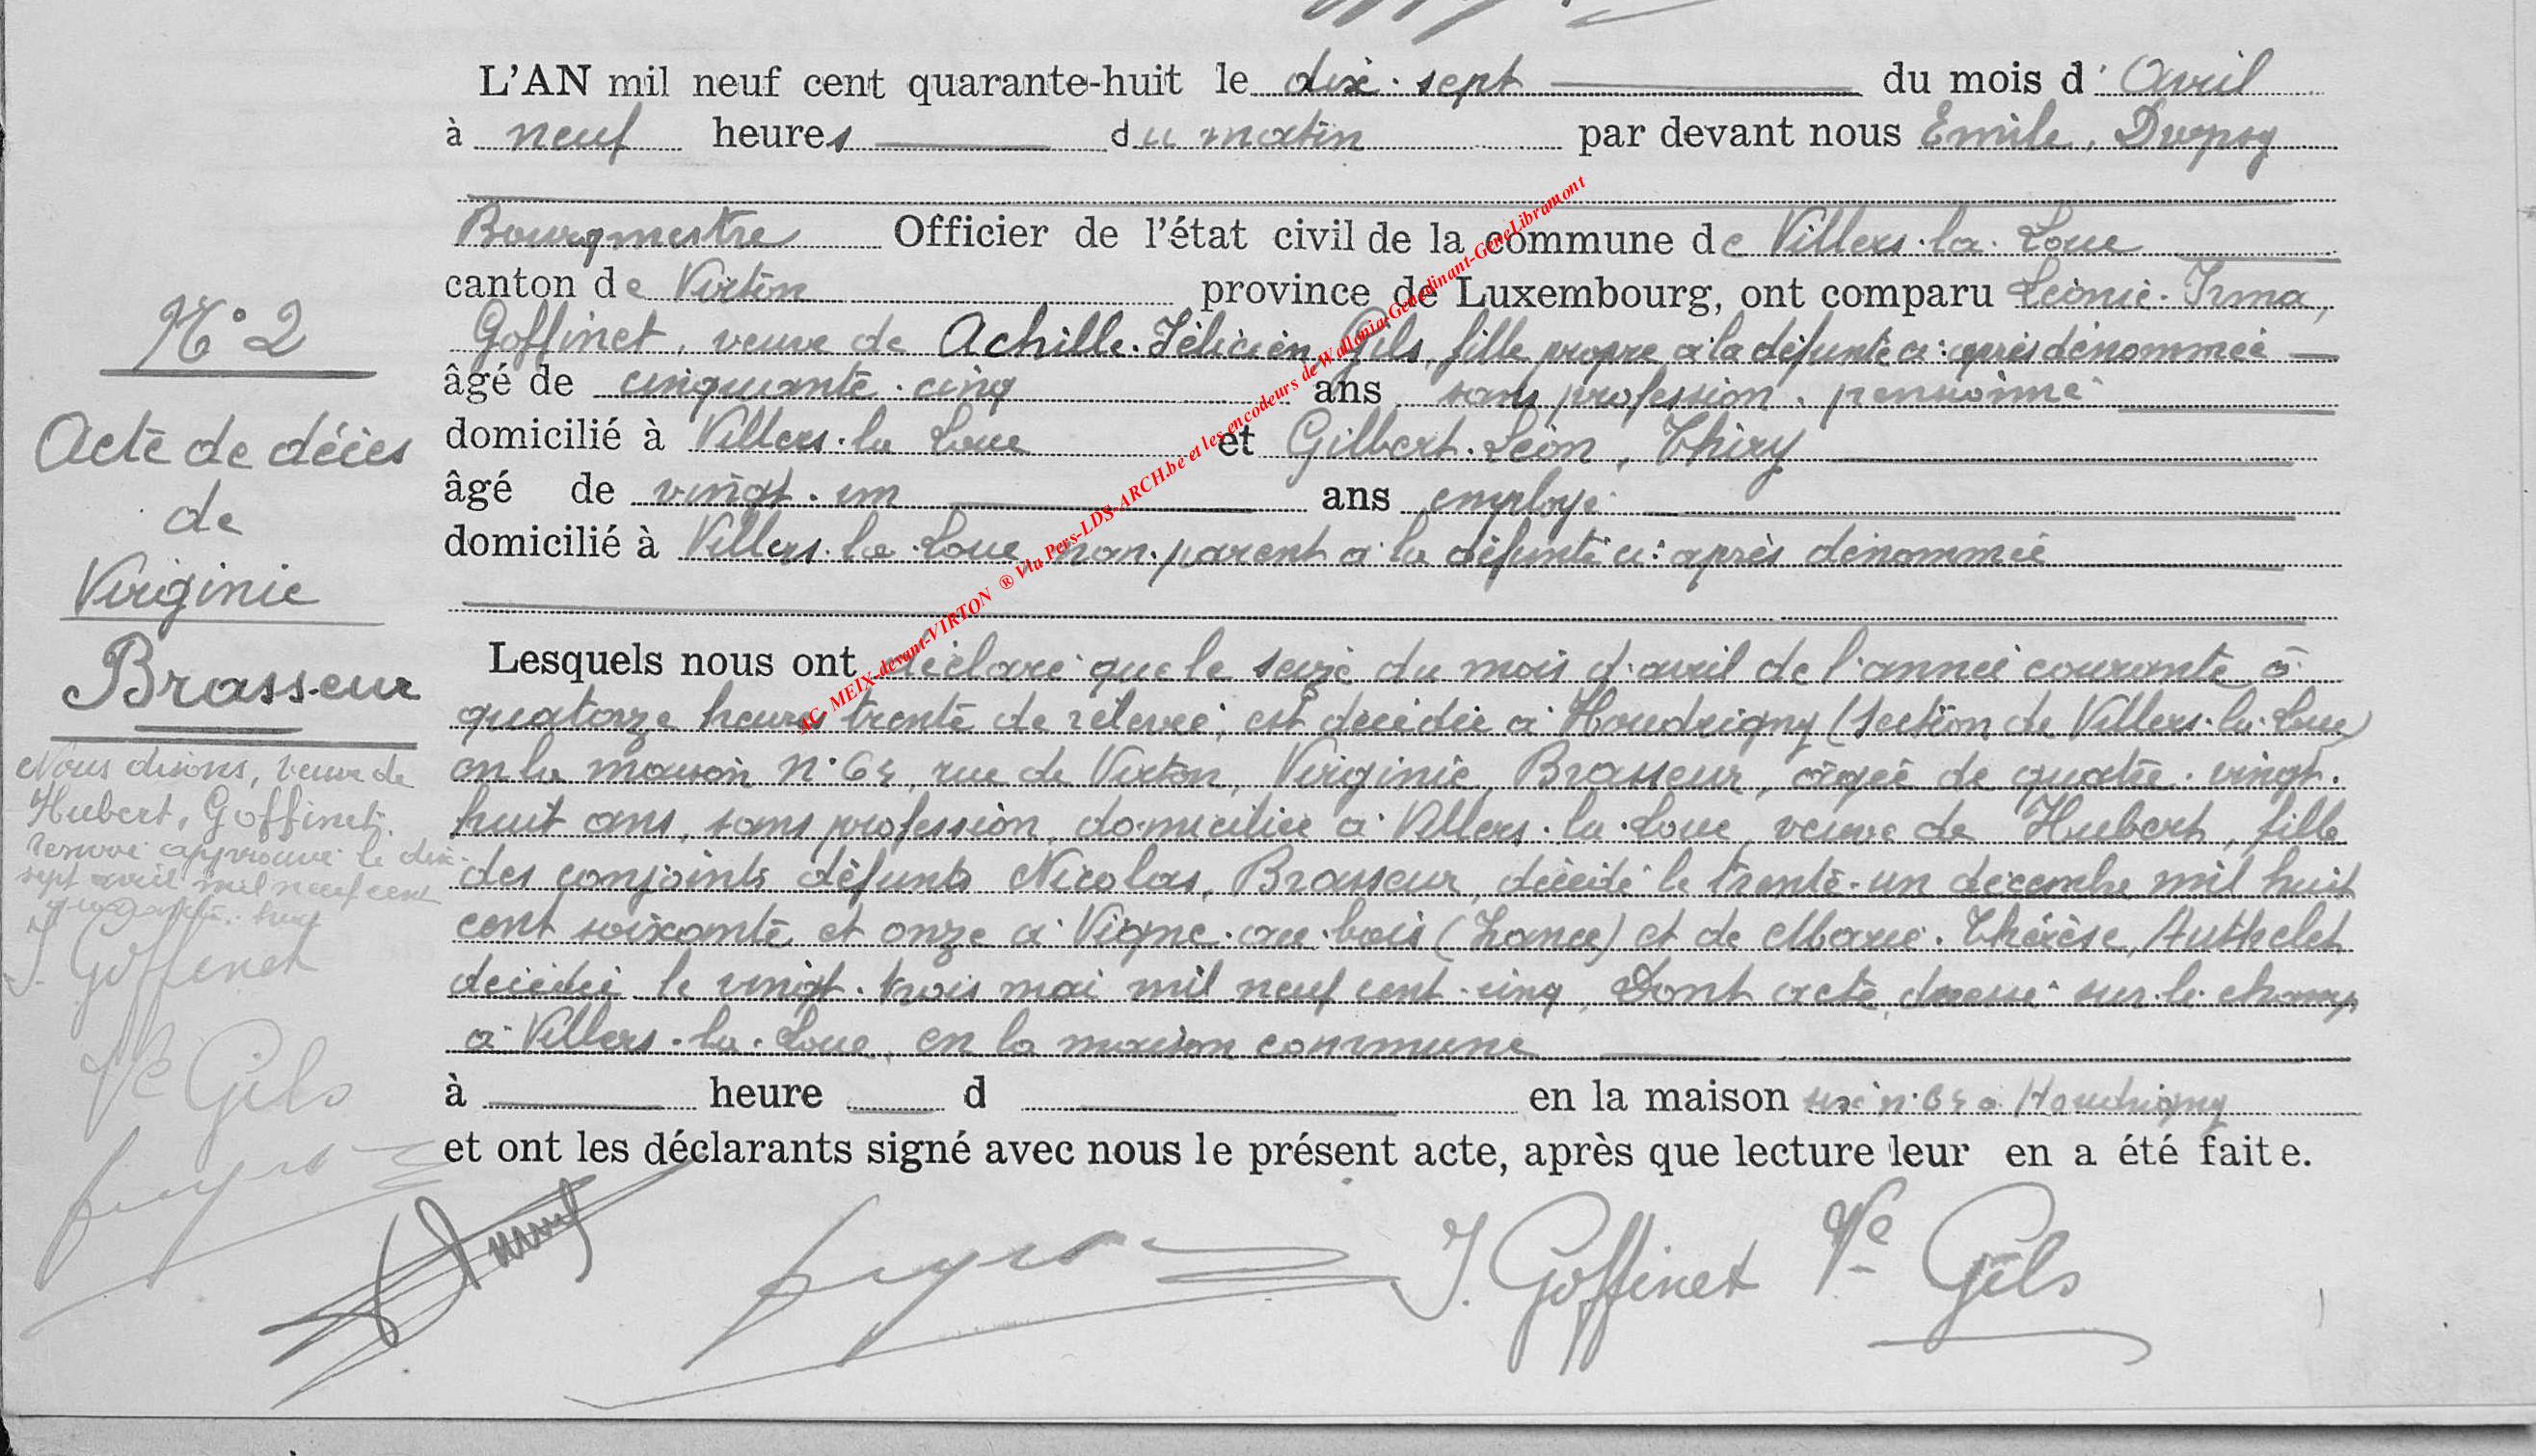 L'AN mil neuf cent quarante-huit le dix-sept du mois d'Avril
à neuf heures du matin par devant nous Emile,
Bourgmestre Officier de l'état civil de la commune de Villers-la-Loue
canton de Virton province de Luxembourg, ont comparu Léonie-Irma,
Goffinet, veuve de Achille-Félicien, Gils, fille propre à la défunte ci-après dénommée
âgé de cinquante-cinq ans sans profession, pensionné
domicilié à Villers-la Loue et Gilbert-Léon, Thiry
âgé de vingt-un ans employé
domicilié à Villers-la-Loue, non-parent à la défunte ci-après dénommée
Lesquels nous ont déclaré que le seize du mois d'avril de l'année courante à
quatorze heures trente de relevée, est décédée à Houdrigny (section de Villers-la-Loue)
en la maison N° 64, rue de Virton, Virginie, Brasseur, âgée de quatre-vingt-
huit ans, sans profession, domiciliée à Villers-la-Loue, veuve de Hubert, fille
des conjoints défunts Nicolas, Brasseur, décédé le trente-un décembre mil huit
cent soixante et onze à Vigne-au-bois (France) et de Marie-Thérèse, Authelet
décédée le vingt-trois mai mil neuf cent-cinq, Dont acte, dressé sur-le-champ
à Villers-la-Loue, en la maison commune
à heure d en la maison sise n° 64 à Houdrigny
et ont les déclarants signé avec nous le présent acte, après que lecture leur en a été faite.
I. Goffinet Ve Gils
N° 2
Acte de décès
de
Virginie
Brasseur
Nous disons, veuve de
Hubert, Goffinet.
renvoi approuvé le dix-
sept avril mil neuf cent
quarante-huit
I. Goffinet
Ve Gils
AC MEIX-devant-VIRTON ® Via Pers-LDS-ARCH.be et les encodeurs de Wallonia-Genedinant-GeneLibramont